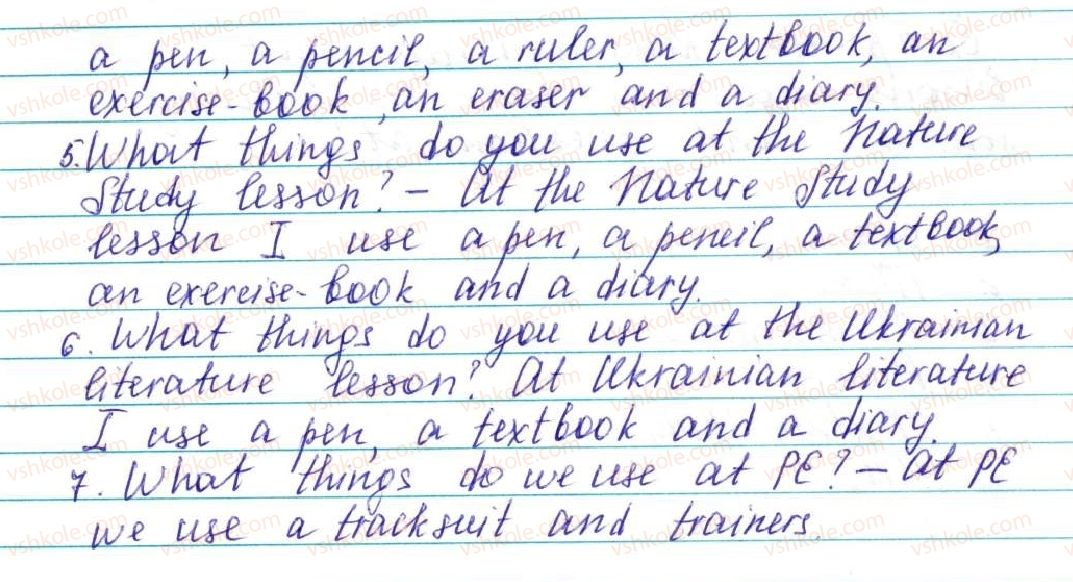 a pen, a pencil, a ruler, a textbook, an
exercise-book, an eraser and a diary.
5. What things do you use at the Nature
Study lesson? – At the Nature Study
lesson I use a pen, a pencil, a textbook,
an exercise-book and a diary.
6. What things do you use at the Ukrainian
literature lesson? At Ukrainian literature
I use a pen, a textbook and a diary.
7. What things do we use at PE? – At PE
we use a tracksuit and trainers.
vshkole.com